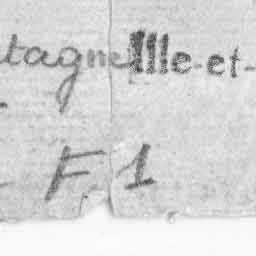 tagne Ille-et-
F 1